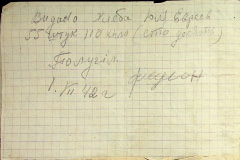 Видано хліба для Евреев
55 штук 110 кило (сто десять)
Получил
1. VII. 42 г